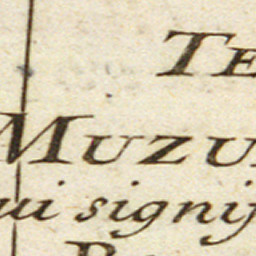 TE
MUZU
ui signif